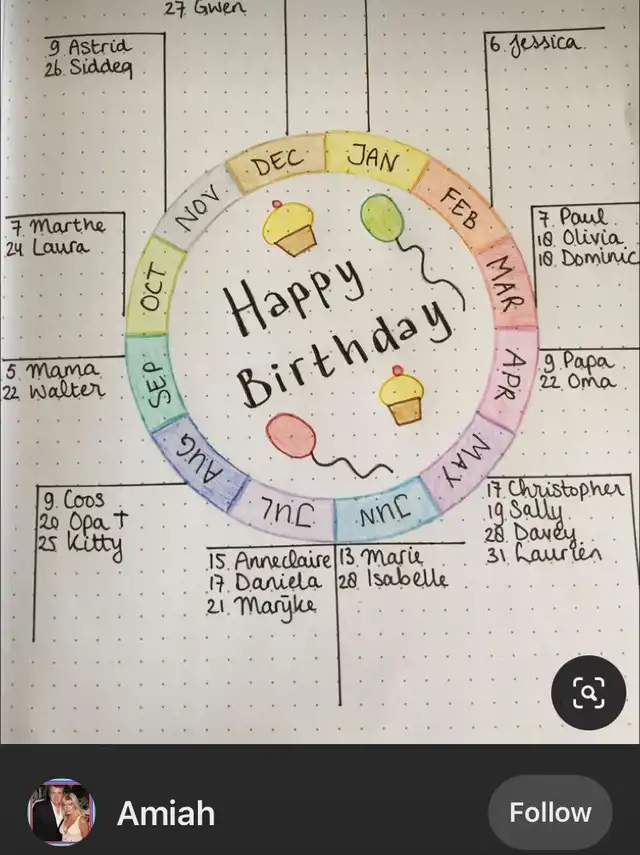 27 Gwen
9. Astrid
26. Siddeq
6. Jessica
DEC
JAN
NOV
FEB
7. Marthe
24 Laura
7. Paul
18. Olivia
18. Dominic
OCT
MAR
Happy
Birthday
5. Mama
22 Walter
SEP
APR
9. Papa
22. Oma
AUG
MAY
JUL
JUN
9. Coos
20 Opa †
25 Kitty
17. Christopher
19 Sally
28. Davey
31. Laurien
15. Anneclaire
17. Daniela
21. Marijke
13. Marie
28. Isabelle
Amiah
Follow